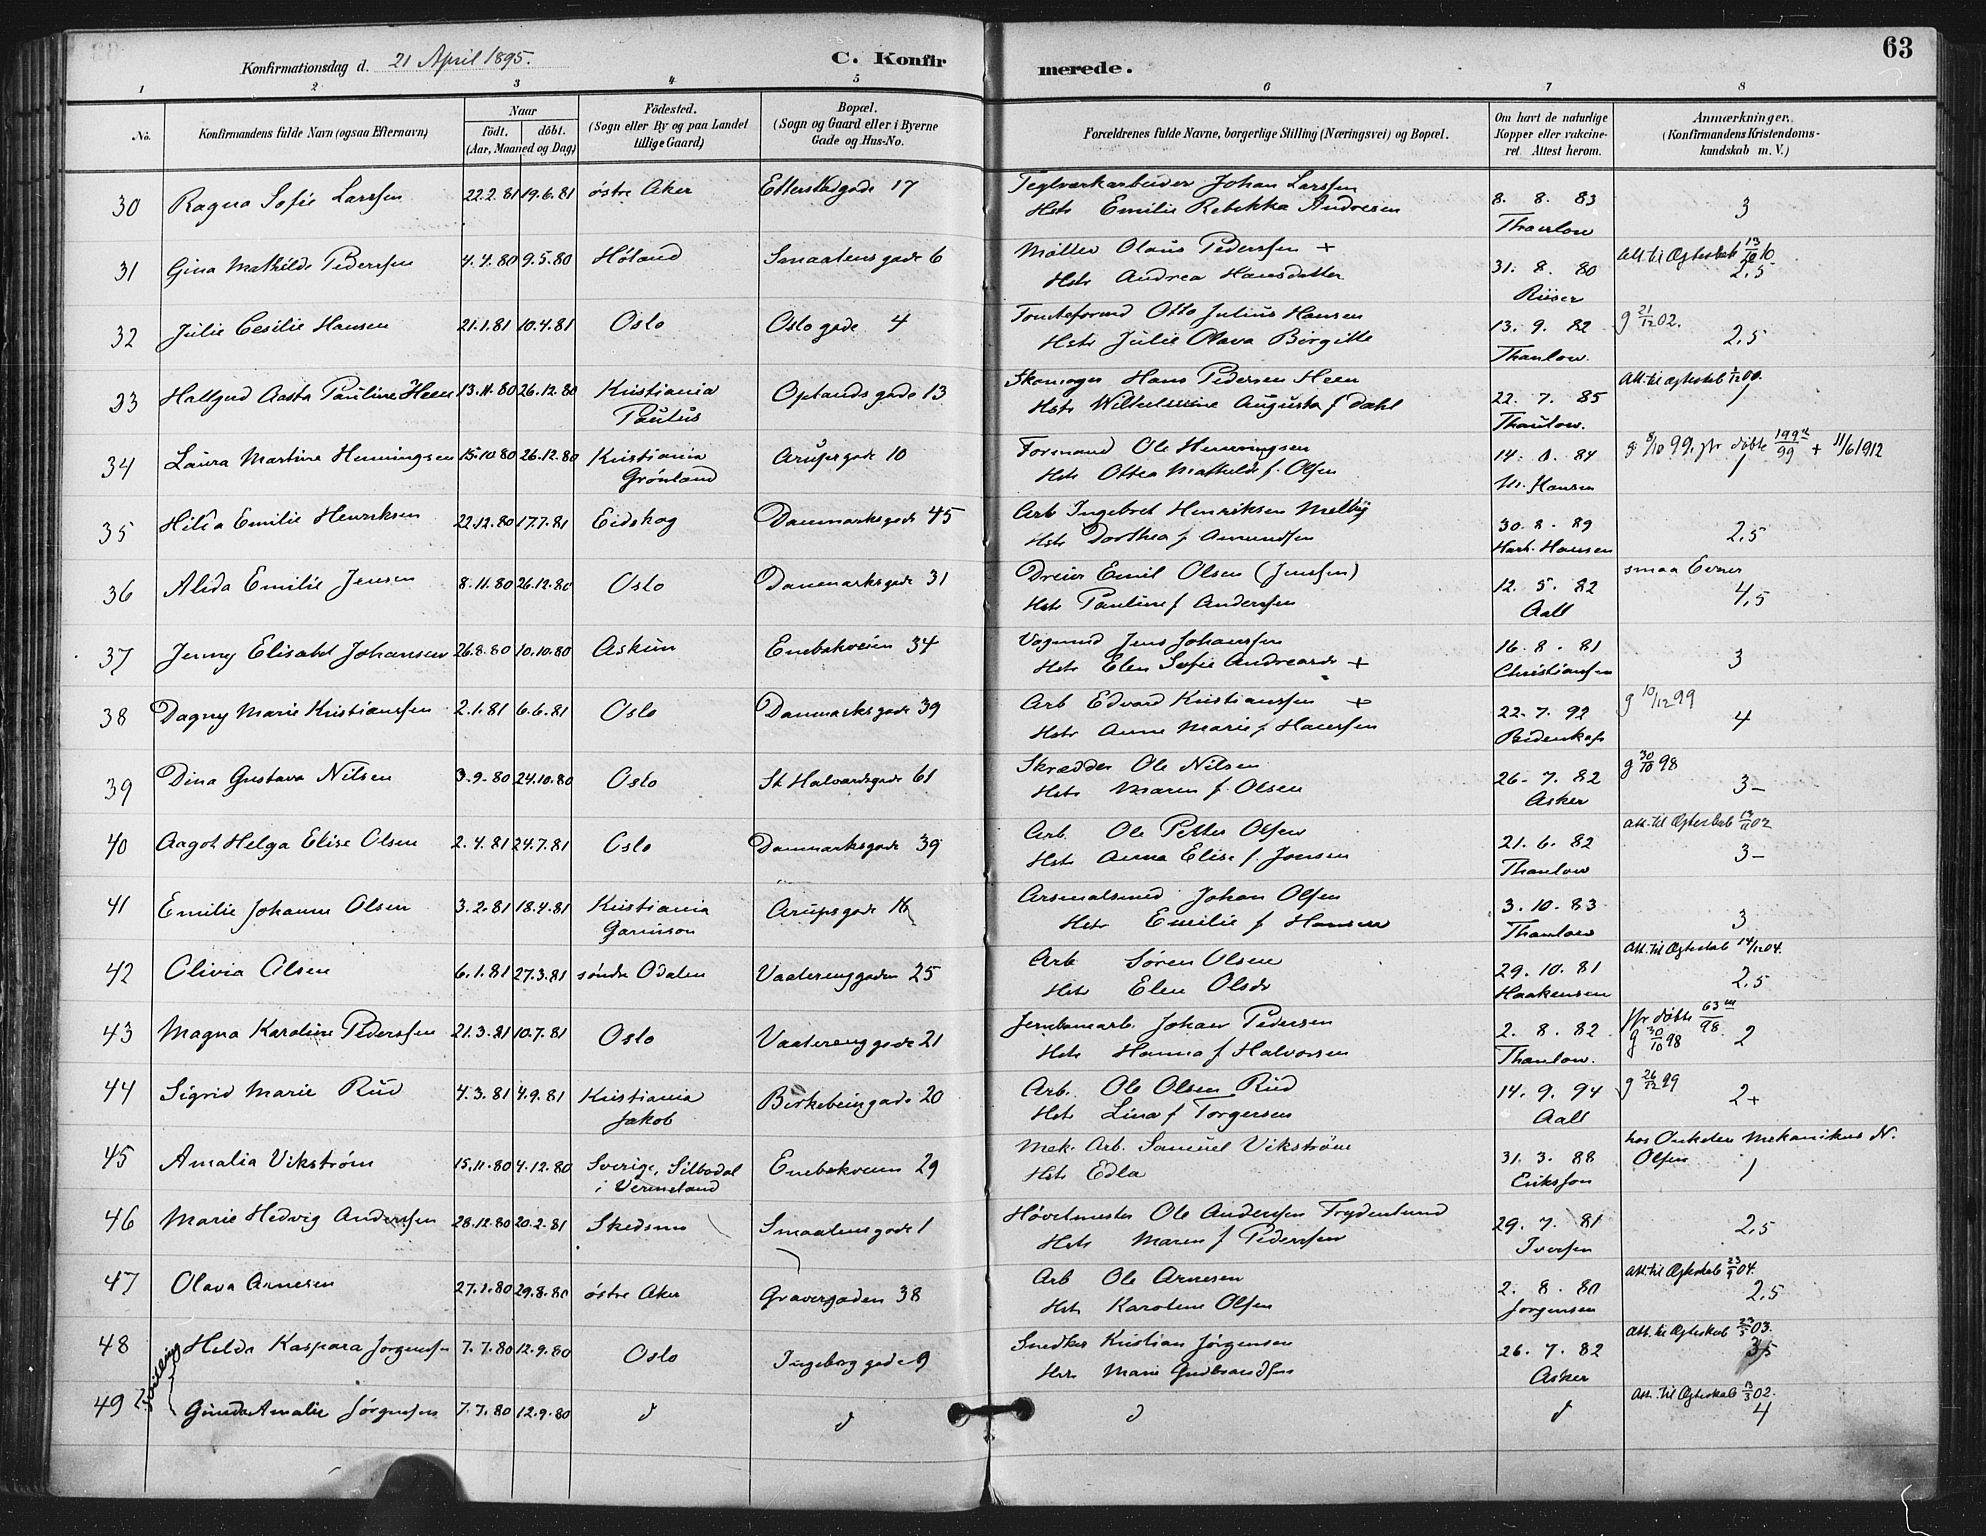 63
Konfirmationsdag d. 21 April 1895. C. Konfirmerede.
1 2 3 4 5 6 7 8
No. Konfirmandens fulde Navn (ogsaa Efternavn) Naar födt. döbt. (Aar, Maaned og Dag) Födested. (Sogn eller By og paa Landet tillige Gaard) Bopæl. (Sogn og Gaard eller i Byerne Gade og Hus-No. Forældrenes fulde Navne, borgerlige Stilling (Næringsvei) og Bopæl. Om havt de naturlige Kopper eller vakcineret. Attest herom. Anmærkninger. (Konfirmandens Kristendomskundskab m. V.)
30 Ragna Sofie Larssen 22.2.81 19.6.81 østre Aker Etterstadgade 17 Teglværkarbeider Johan Larssen 8. 8. 83 3
Hstr Emilie Rebekka Andresen Thaulow
31 Gina Mathilde Pederssen 4.4.80 9.5.80 Høland Smaalensgade 6 Møller Olaus Pederssen + 31. 8. 80 Att. til Ægteskab 13/10 10.
Hstr Andrea Hansdatter Riiser 2,5
32 Julie Cesilie Hansen 21.1.81 10.4.81 Oslo Oslo gade 4 Tomteformd Otto Julius Hansen 13. 9. 82 g 21/12 02.
Hstr Julie Olava Birgitte Thaulow. 2,5
33 Hallgerd Aasta Pauline Heen 13.11.80 26.12.80 Kristiania Oplandsgade 13 Skomager Hans Pedersen Heen 22. 7. 85 Att. til Ægteskab 1/12 00.
Paulus Hstr Wilhelmine Augusta f. Dahl Thaulow. 1
34 Laura Martine Henningsen 15.10.80 26.12.80 Kristiania Arupsgade 10 Formand Ole Henningsen 14. 8. 84 g 8/10 99, jfr døbte 199/99 + 11/6 1912
Grønland Hstr Ottea Mathilde f. Olsen M. Hansen 1
35 Hilda Emilie Henriksen 22.12.80 17.7.81 Eidskog Danmarksgade 45 Arb Ingebret Henriksen Melby 30. 8. 89
Hstr Dorthea f. Amundsen Hansen 2,5
36 Alida Emilie Jensen 8.11.80 26.12.80 Oslo Danmarksgade 31 Dreier Emil Olsen (Jenssen) 12. 5. 82 smaa Evner
Hstr Pauline f Anderssen Aall 4,5
37 Jenny Elisabet Johansen 26.8.80 10.10.80 Askim Enebakveien 34 Vognmd Jens Johanssen 16. 8. 81
Hstr Elen Sofie Andreasdr + Christianssen 3
38 Dagny Marie Kristianssen 2.1.81 6.6.81 Oslo Danmarksgade 39 Arb Edvard Kristianssen + 22. 7. 92 g 10/12 99
Hstr Anne Marie f. Hanssen Bidenkap 4
39 Dina Gustava Nilsen 3.9.80 24.10.80 Oslo St Halvardsgade 61 Skrædder Ole Nilsen 26. 7. 82 g 30/10 98
Hstr Maren f. Olsen Asker 3-
40 Aagot Helga Elise Olsen 2.4.81 24.7.81 Oslo Danmarksgade 39 Arb. Ole Petter Olsen 21. 6. 82 Att. til Ægteskab 02
Hstr Anna Elise f. Jonsen Thaulow 3-
41 Emilie Johanne Olsen 3.2.81 18.4.81 Kristiania Arupsgade 16 Arsenalsmed Johan Olsen 3. 10. 83
Garnison Hstr Emilie f Hansen Thaulow 3
42 Olivia Olsen 6.1.81 27.3.81 søndre Odalen Vaalerenggaden 25 Arb Søren Olsen 29. 10. 81 Att. til Ægteskab 14/12 04.
Hstr Elen Olsdr Haakensen 2,5
43 Magna Karoline Pederssen 21.3.81 10.7.81 Oslo Vaalerenggade 21 Jernbanearb. Johan Pedersen 2. 8. 82 jfr døbte 63/98.
Hstr Hanna f Halvorsen Thaulow. g 30/10 98 2
44 Sigrid Marie Rud 4.3.81 4.9.81 Kristiania Birkebeingade 20 Arb. Ole Olsen Rud 14. 9. 94 g 26/12 99
Jakob Hstr Lina f Torgersen Aall 2+
45 Amalia Vikstrøm 15.11.80 4.12.80 Sverige, Silbodal Enebakveien 29 Mek. Arb. Samuel Vikstrøm 31. 3. 88 hos Onkelen Mekanikus N.
i Vermeland Hstr Edla Eriksson Olsen 1
46 Marie Hedvig Anderssen 28.12.80 20.2.81 Skedsmo Smaalensgade 1 Høvelmester Ole Anderssen Frydenlund 29. 7. 81
Hstr Maren f Pederssen Iversen 2,5
47 Olava Arnesen 27.1.80 29.8.80 østre Aker Gravergaden 38 Arb Ole Arnesen 2. 8. 80 Att. til Ægteskab 23/9 04.
Hstr Karoline Olsen Jørgensen 2,5
48 Helda Kaspara Jørgensen 7.7.80 12.9.80 Oslo Ingeborggade 9 Snedker Kristian Jørgensen 26. 7. 82 Att. til Ægteskab 03.
Hstr Marie Gulbrandsen Asker 3,5
Tvilling
49 Gunda Amalie Jørgensen 7.7.80 12.9.80 d d d d Att. til Ægteskab 13/3 02.
4